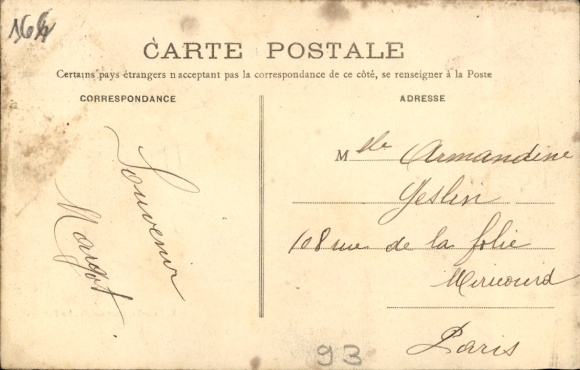 164
CARTE POSTALE
Certains pays étrangers n'acceptant pas la correspondance de ce côté, se renseigner à la Poste
CORRESPONDANCE
ADRESSE
Souvenir
Margot
Mlle Armandine
Yeslin
108 rue de la folie
Mericourd
Paris
93